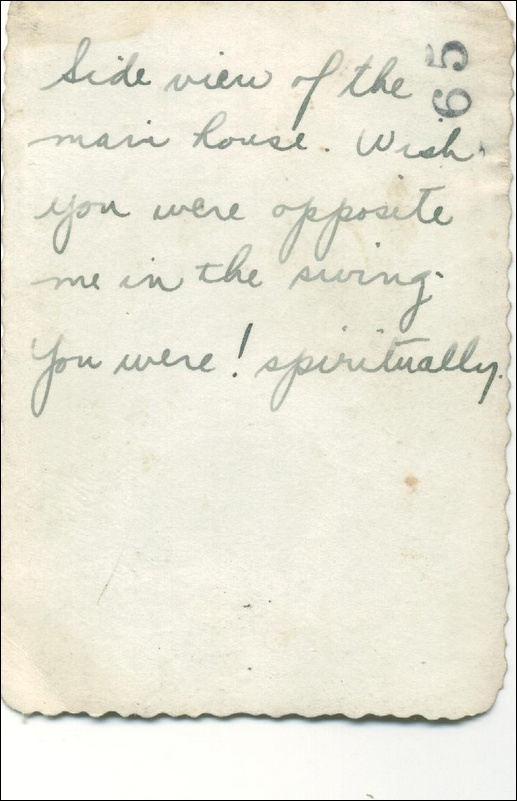 65
Side view of the
main house. Wish
you were opposite
me in the swing.
You were! spiritually.